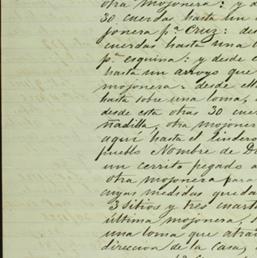 otra mojonera: y d
30 cuerdas hasta un
jonera pª Cruz: des
cuerdas hasta una l
pª esquina: y desde e
hasta un arroyo que
mojonera: desde ell
hasta sobre una loma,
desde esta otras 30 cuer
ñadilla, otra mojoner
aqui hasta el lindero
pueblo Nombre de D
un cerrito pegado a
otra mojonera para
cuyas medidas queda
3 sitios y tres cuart
última mojonera, o
una loma que atra
direccion de la casa,